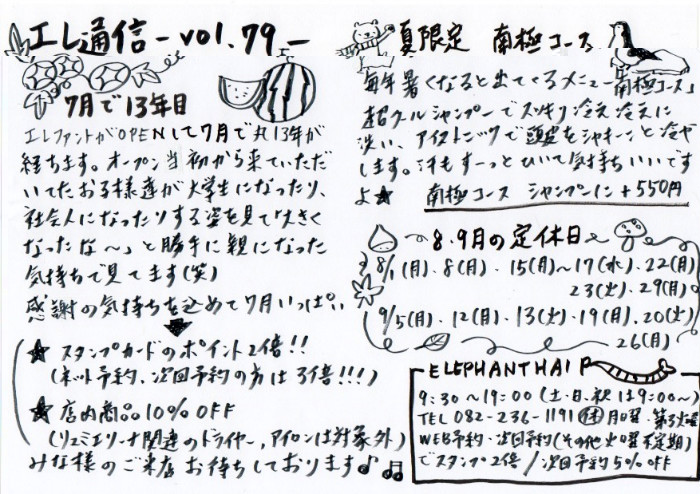 エレ通信-vol.79-
7月で13年目
エレファントがOPENして7月で丸13年が
経ちます。オープン当初から来ていただ
いてたお子様達が大学生になったり、
社会人になったりする姿を見て「大きく
なったな〜」と勝手に親になった
気持ちで見てます(笑)
感謝の気持ちを込めて7月いっぱい
★スタンプカードのポイント2倍!!
(ネット予約、次回予約の方は3倍!!!)
★店内商品10%OFF
(リュミエリーナ関連のドライヤー,アイロンは対象外)
みな様のご来店お待ちしております♪♫
夏限定 南極コース
毎年暑くなると出てくるメニュー「南極コース」
超クールシャンプーでスッキリ冷え冷えに
洗い、アイストニックで頭皮をシャキーンと冷や
します。汗もすーっとひいて気持ちいいです
よ★ 南極コース シャンプーに+550円
8.9月の定休日
8/1(月).8(月).15(月)〜17(水).22(月)
23(火).29(月)
9/5(月).12(月).13(火).19(月).20(火)
26(月)
ELEPHANT HAIR
9:30〜19:00(土・日、祝は9:00〜)
TEL 082-236-1191 ㊡月曜・第3火曜
WEB予約・次回予約(その他火曜不定期)
でスタンプ2倍/次回予約5%OFF